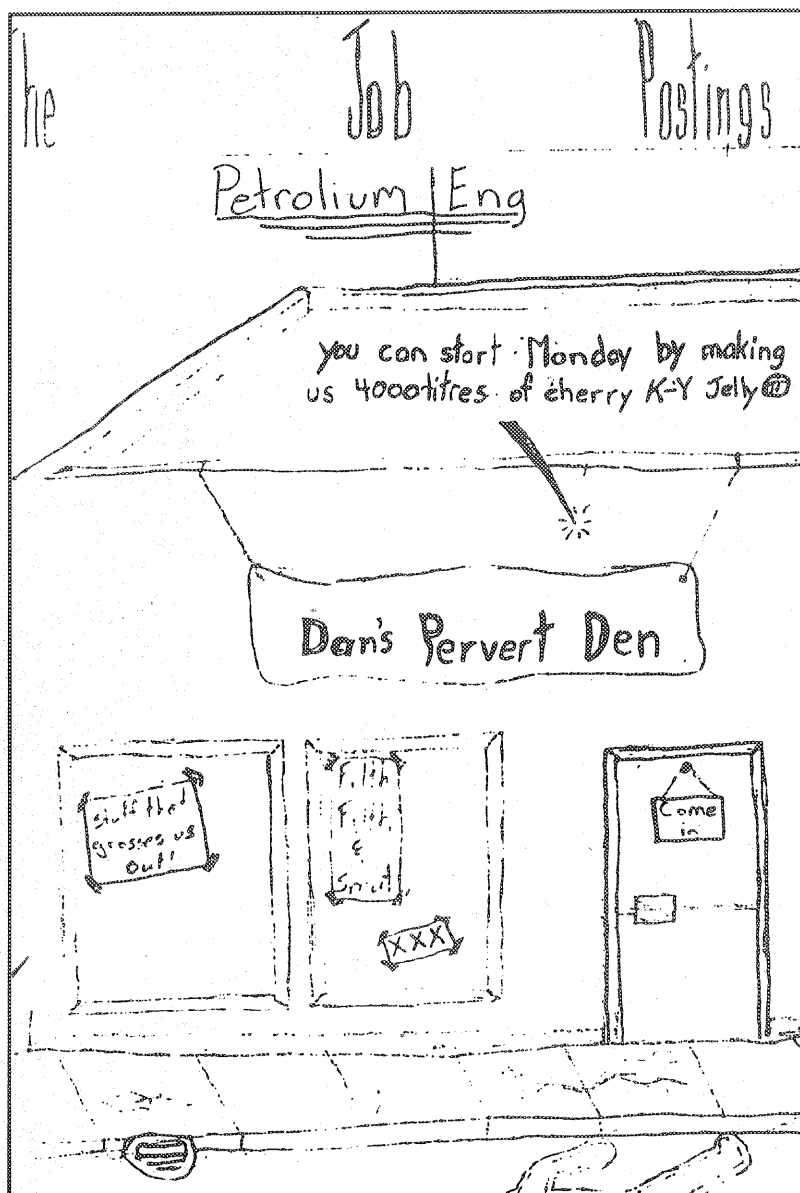 he Job Postings
Petrolium Eng
you can start Monday by making
us 4000litres of cherry K-Y Jelly
Dan's Pervert Den
Stuff that
grosses us
out!
Filth
Filth,
&
Smut!
XXX
Come
in